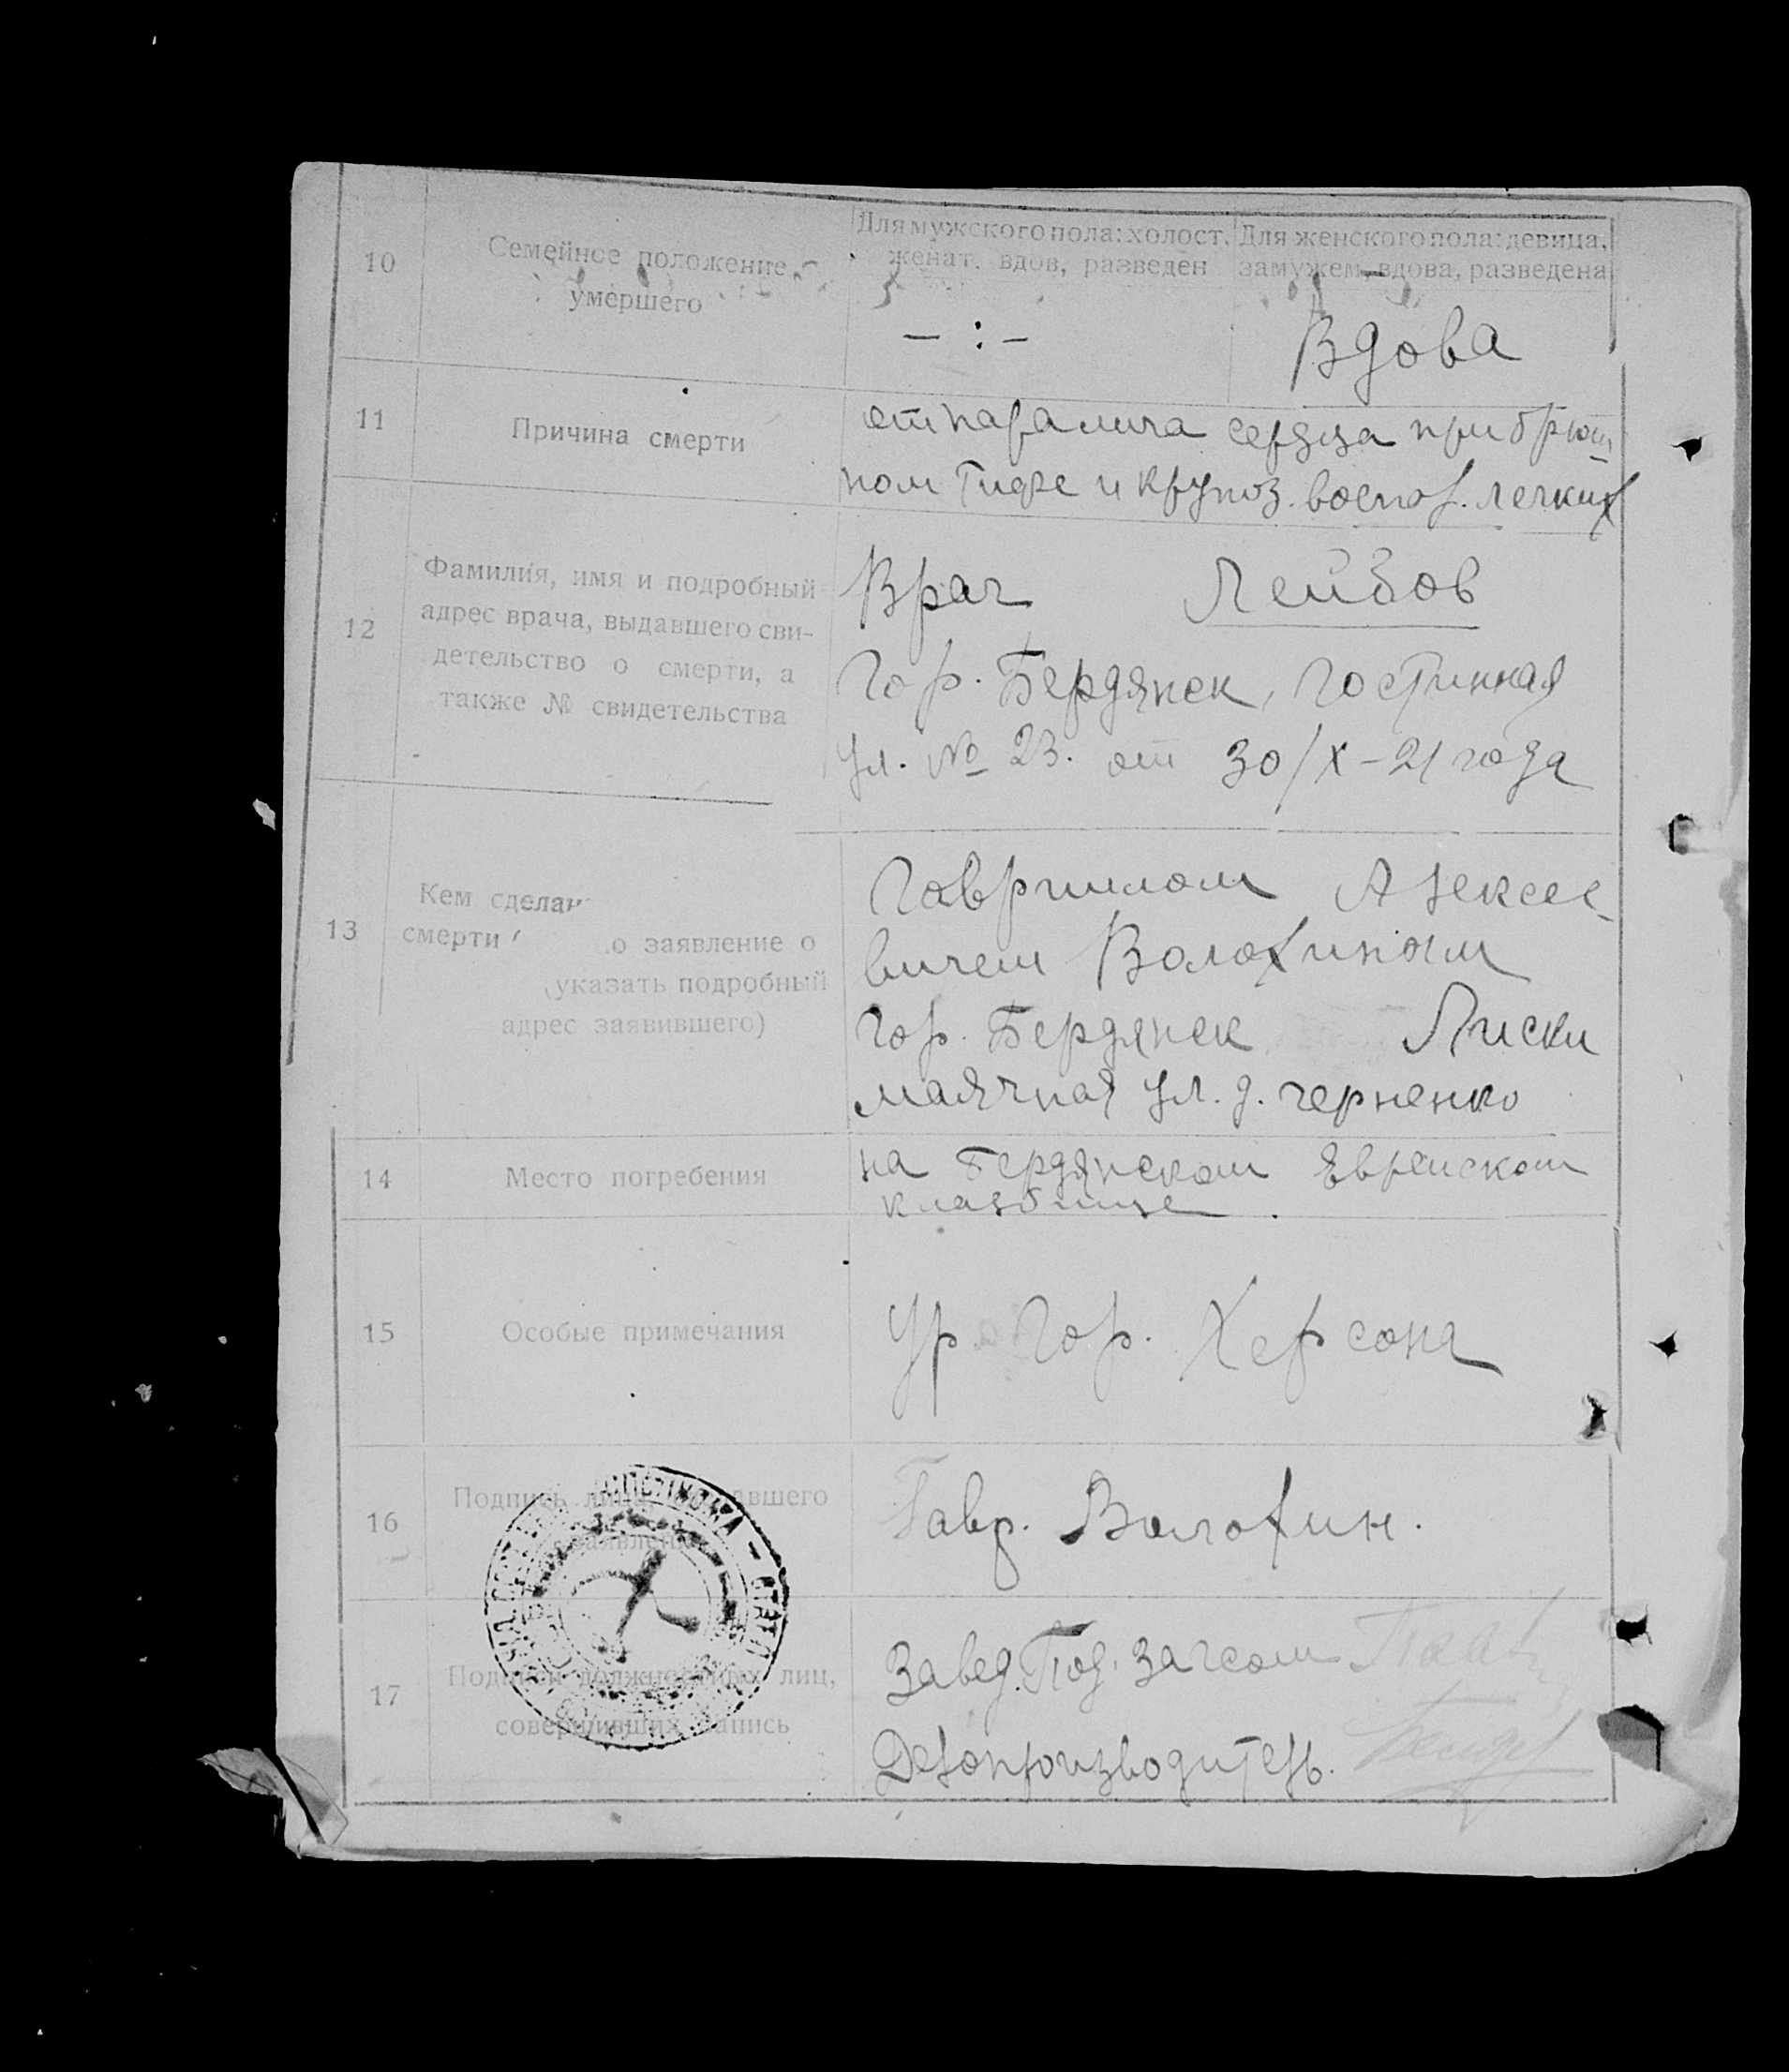 10
Семейное положение
умершего
Для мужского пола: холост,
женат, вдов, разведен
— : —
Для женского пола: девица,
замужем, вдова, разведена
Вдова
11
Причина смерти
от паралича сердца при брюш
ном тифе и крупоз. воспал. легких
12
Фамилия, имя и подробный
адрес врача, выдавшего сви-
детельство о смерти, а
также № свидетельства
Врач Лейбов
Гор. Бердянск, Гостинная
ул. № 23. от 30/X-21 года
13
Кем сделан
смерти
о заявление о
(указать подробный
адрес заявившего)
Гавриилом Алексее-
вичем Волохиным
Гор. Бердянск Лиски
маячная ул. д. черненко
14
Место погребения
на Бердянском Еврейском
кладбище.
15
Особые примечания
Ур. Гор. Херсона
16
Подпись лица, авшего
заявлен
Гавр. Волохин.
17
Подписи должностных лиц,
совершивших запись
Завед. Под. Загсом
Делопроизводитель.